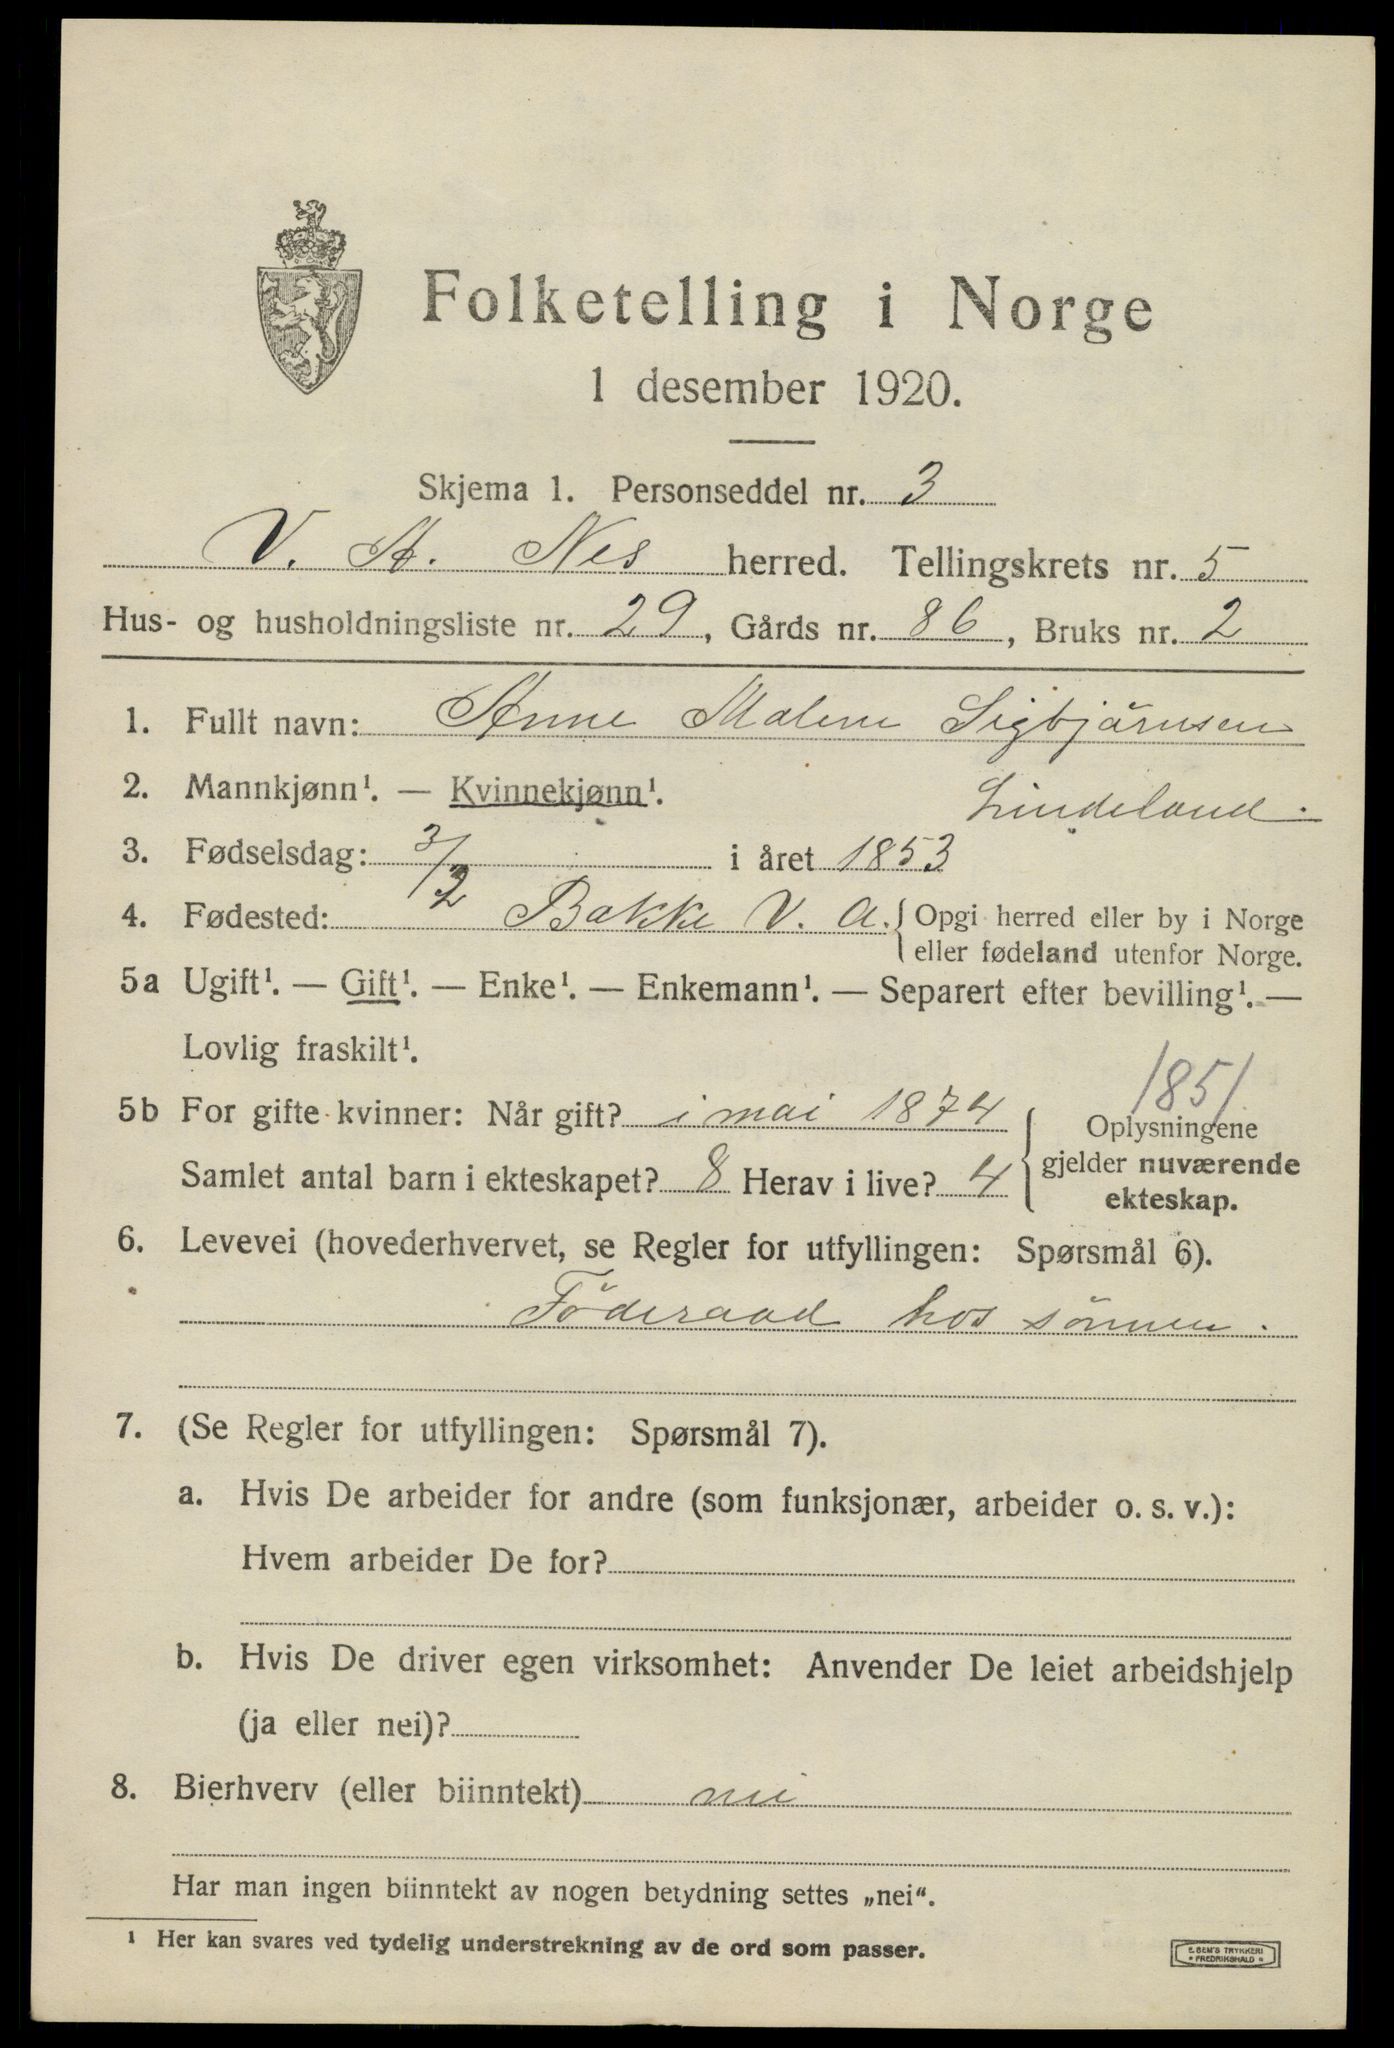 Folketelling i Norge
1 desember 1920.
Skjema 1. Personseddel nr. 3
V. A. Nes herred. Tellingskrets nr. 5
Hus- og husholdningsliste nr. 29, Gårds nr. 86, Bruks nr. 2
1. Fullt navn: Anne Malene Sigbjörnsen
2. Mannkjønn¹. — Kvinnekjønn¹. Lindeland.
3. Fødselsdag: 3/2 i året 1853
4. Fødested: Bakke V. A. { Opgi herred eller by i Norge
eller fødeland utenfor Norge.
5a Ugift¹. — Gift¹. — Enke¹. — Enkemann¹. — Separert efter bevilling¹. —
Lovlig fraskilt¹.
1851
5b For gifte kvinner: Når gift? i mai 1874 { Oplysningene
Samlet antal barn i ekteskapet? 8 Herav i live? 4 gjelder nuværende
ekteskap.
6. Levevei (hovederhvervet, se Regler for utfyllingen: Spørsmål 6).
Föderaad hos sönnen.
7. (Se Regler for utfyllingen: Spørsmål 7).
a. Hvis De arbeider for andre (som funksjonær, arbeider o. s. v.):
Hvem arbeider De for?
b. Hvis De driver egen virksomhet: Anvender De leiet arbeidshjelp
(ja eller nei)?
8. Bierhverv (eller biinntekt) nei
Har man ingen biinntekt av nogen betydning settes „nei“.
¹ Her kan svares ved tydelig understrekning av de ord som passer.
E. SEM'S TRYKKERI
* FREDRIKSHALD *